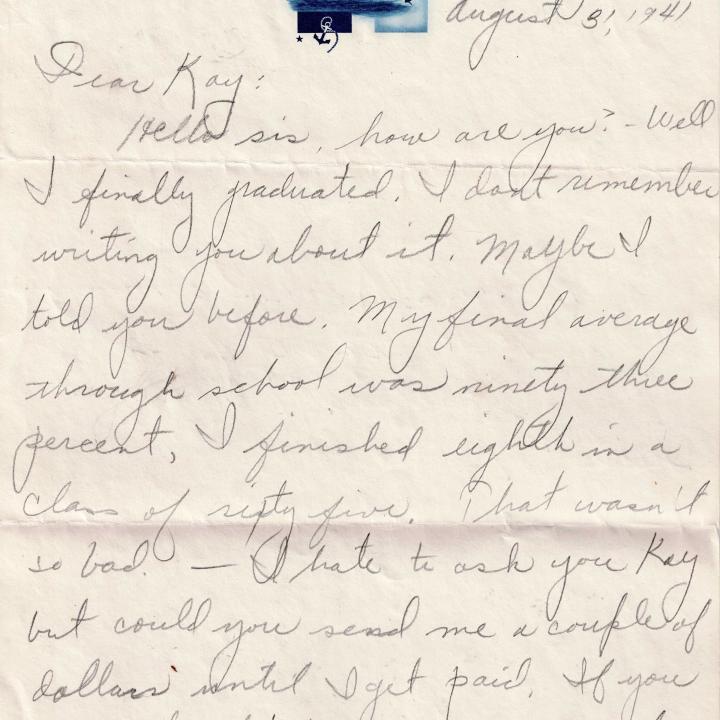 August 31, 1941
Dear Kay:
Hello sis, how are you? - Well
I finally graduated. I dont remember
writing you about it. Maybe I
told you before. My final average
through school was ninety three
percent, I finished eighth in a
class of sixty five. That wasn't
so bad. — I hate to ask you Kay
but could you send me a couple of
dollars until I get paid. If you